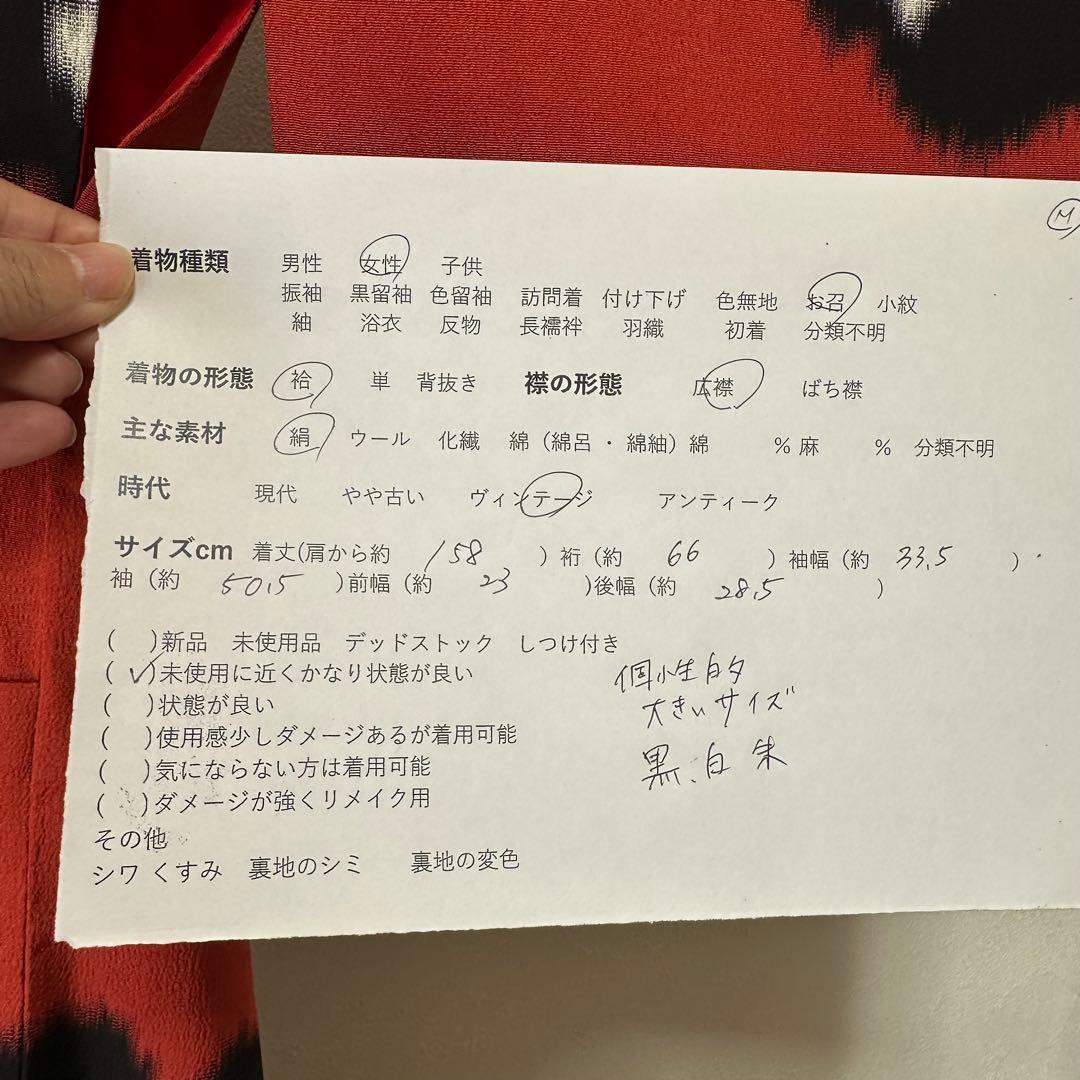 M
着物種類 男性 女性 子供
振袖 黒留袖 色留袖 訪問着 付け下げ 色無地 お召 小紋
紬 浴衣 反物 長襦袢 羽織 初着 分類不明
着物の形態 袷 単 背抜き 襟の形態 広襟 ばち襟
主な素材 絹 ウール 化繊 綿（綿呂・綿紬）綿 %麻 % 分類不明
時代 現代 やや古い ヴィンテージ アンティーク
サイズcm 着丈(肩から約 158 ）裄（約 66 ）袖幅（約 33,5 ）
袖（約 50,5 ）前幅（約 23 )後幅（約 28,5 ）
( )新品 未使用品 デッドストック しつけ付き
( ✓)未使用に近くかなり状態が良い
( )状態が良い
( )使用感少しダメージあるが着用可能
( )気にならない方は着用可能
( )ダメージが強くリメイク用
個性的
大きいサイズ
黒、白 朱
その他
シワ くすみ 裏地のシミ 裏地の変色